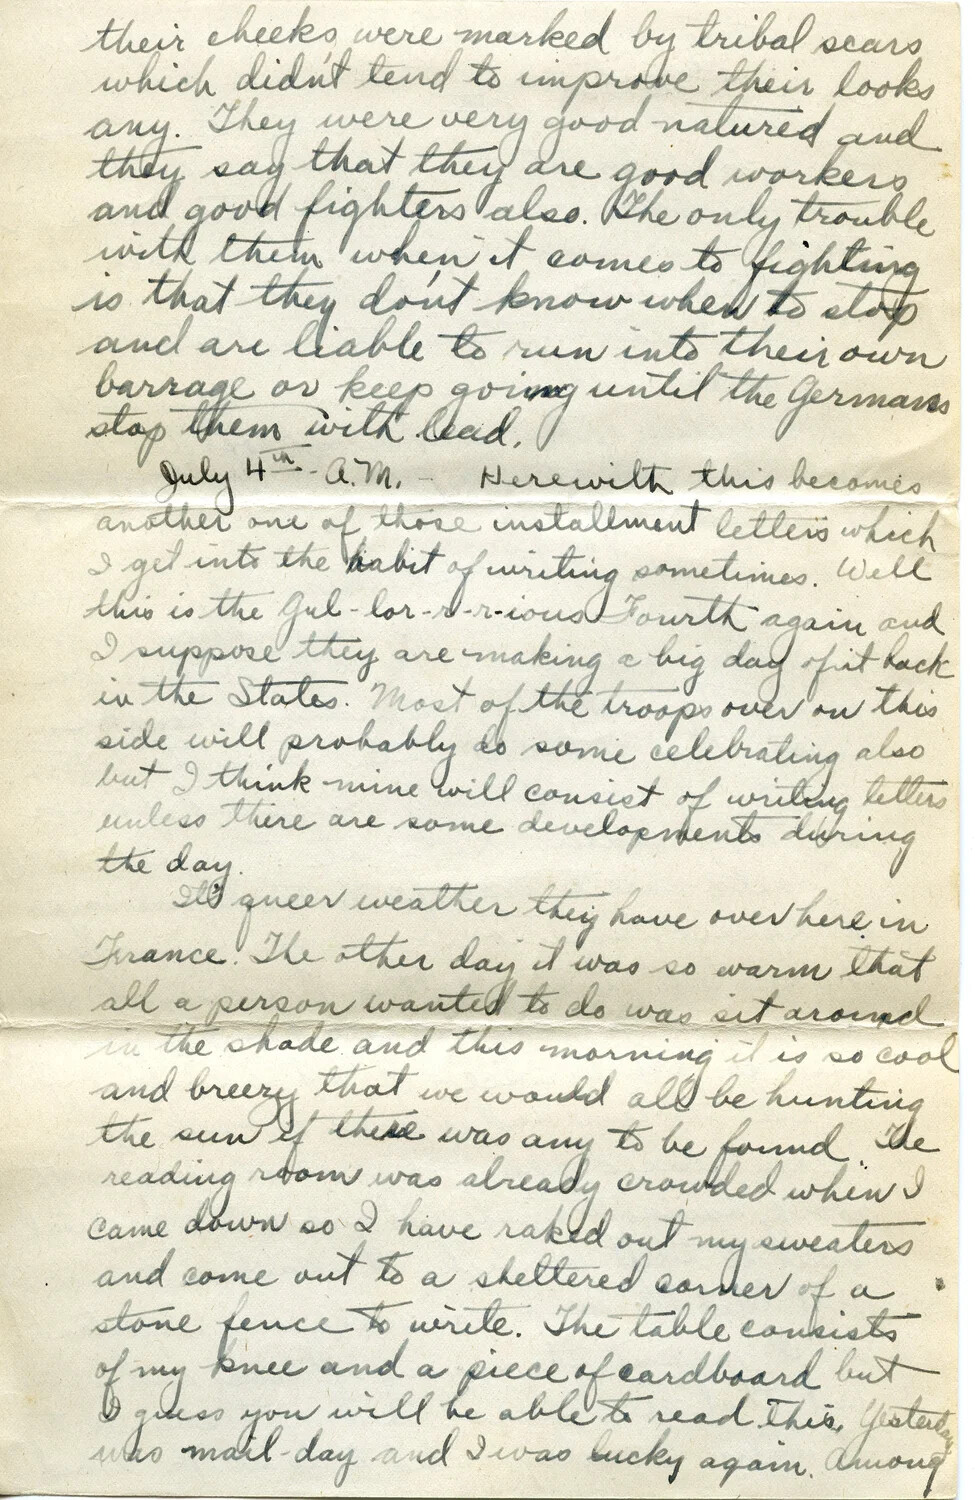 their cheeks were marked by tribal scars
which didn't tend to improve their looks
any. They were very good-natured and
they say that they are good workers
and good fighters also. The only trouble
with them when it comes to fighting
is that they don't know when to stop
and are liable to run into their own
barrage or keep going until the Germans
stop them with lead.
July 4th - A.M. - Herewith this becomes
another one of those installment letters which
I get into the habit of writing sometimes. Well
this is the Gul-lor-r-r-ious Fourth again and
I suppose they are making a big day of it back
in the States. Most of the troops over on this
side will probably do some celebrating also
but I think mine will consist of writing letters
unless there are some developments during
the day.
It's queer weather they have over here in
France. The other day it was so warm that
all a person wanted to do was sit around
in the shade and this morning it is so cool
and breezy that we would all be hunting
the sun if there was any to be found. The
reading room was already crowded when I
came down so I have raked out my sweaters
and come out to a sheltered corner of a
stone fence to write. The table consists
of my knee and a piece of cardboard but
I guess you will be able to read this. Yesterday
was mail-day and I was lucky again. Among